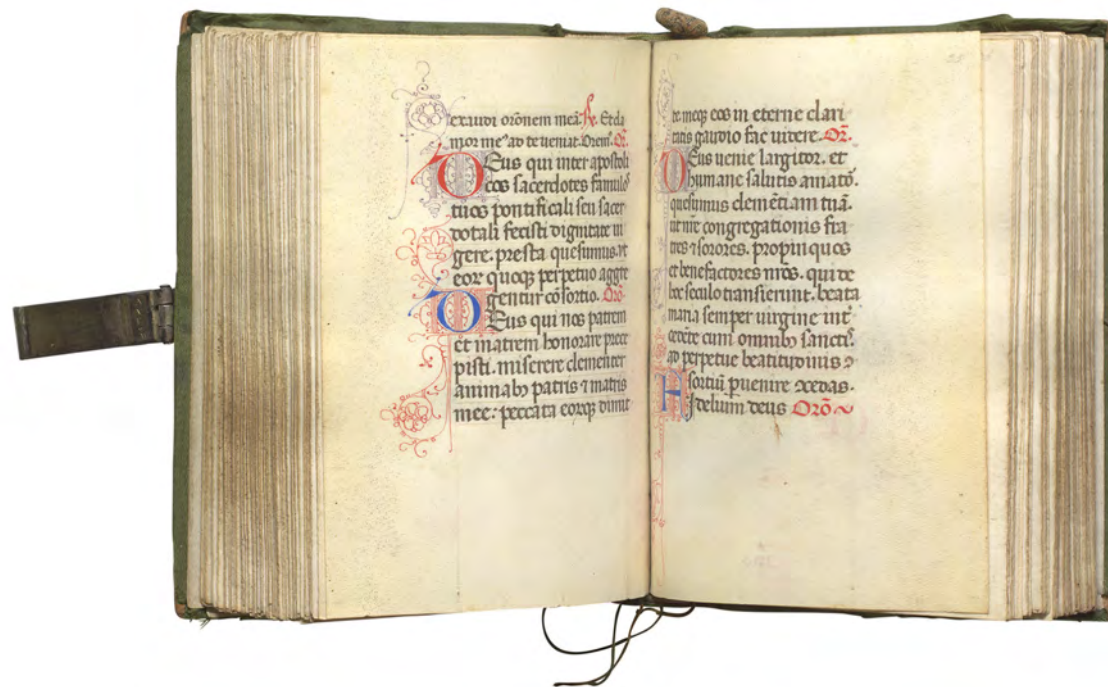 exaudi orōnem meā. ℟. Et cla
mor meꝰ ad te veniat. Orem̄. Or̄.
Deus qui inter apostoli
cos sacerdotes famulos
tuos pontificali seu sacer
dotali fecisti dignitate vi
gere. presta quesumus. vt
eoꝝ quoqꝫ perpetuo aggre
gentur cōsortio. Orō
Deus qui nos patrem
et matrem honorare prece
pisti. miserere clementer
animabꝫ patris ⁊ matris
mee: peccata eoꝝqꝫ dimit
te. meqꝫ eos in eterne clari
tatis gaudio fac vivere. Or̄.
Deus venie largitor. et
humane salutis amatō.
quesumus clemētiam tuā.
ut nr̄e congregationis fra
tres ⁊ sorores. propinquos
et benefactores nr̄os. qui de
hoc seculo transierunt. beata
maria semper virgine int̄
cedēte cum omnibꝫ sanctꝭ.
ad perpetue beatitudinis ꝯ
sortiū ꝑuenire ꝯcedas.
Fidelium deus Orō